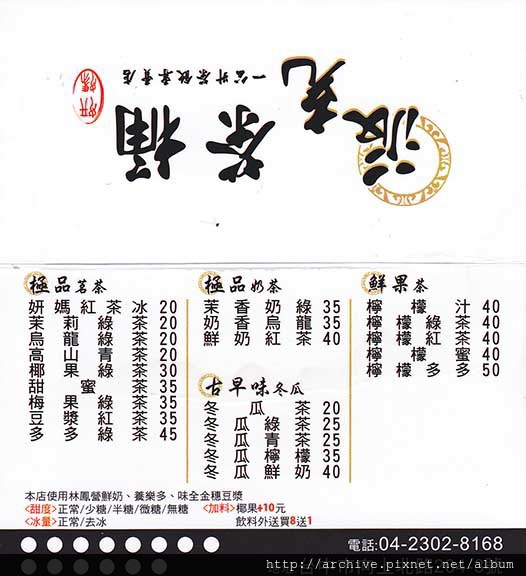 茶桶
一公升茶飲專賣店
極品茗茶
妍媽紅茶冰 20
茉莉綠茶 20
烏龍綠茶 20
高山青茶 20
椰果綠茶 30
甜蜜茶 35
梅果綠茶 35
豆漿紅茶 35
多多綠茶 45
極品奶茶
茉香奶綠 35
奶香烏龍 35
鮮奶紅茶 40
古早味冬瓜
冬瓜茶 20
冬瓜綠茶 25
冬瓜青茶 25
冬瓜檸檬 35
冬瓜鮮奶 40
鮮果茶
檸檬汁 40
檸檬綠茶 40
檸檬紅茶 40
檸檬蜜 40
檸檬多多 50
本店使用林鳳營鮮奶、養樂多、味全金穗豆漿
<甜度>正常/少糖/半糖/微糖/無糖 <加料>椰果+10元
<冰量>正常/去冰 飲料外送買8送1
電話:04-2302-8168
http://archive.pixnet.net/album